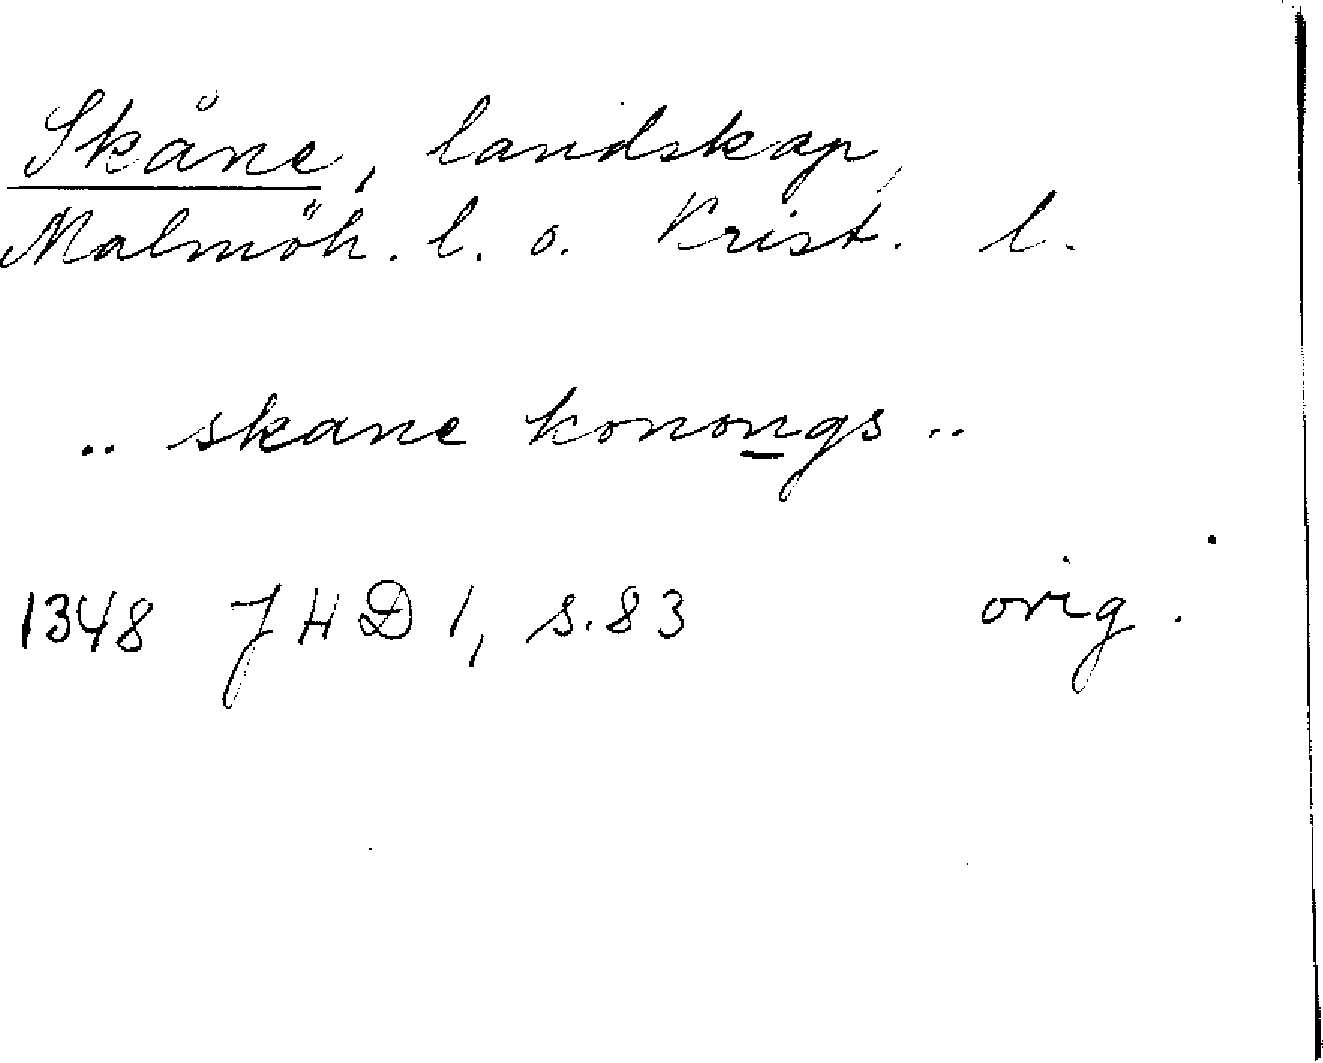 Skåne, landskap,
Malmöh. l. o. Krist. l.
.. skane konongs ..
1348 JHD 1, s. 83 orig.